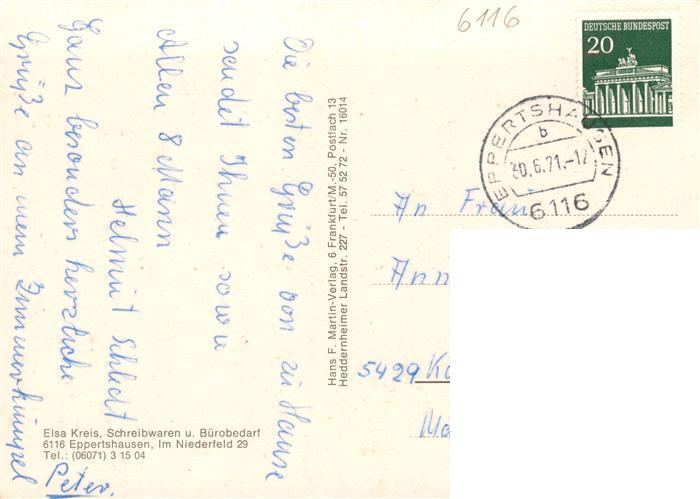 6116
DEUTSCHE BUNDESPOST
20
EPPERTSHAUSEN
b
30.6.71.-17
6116
Die besten Grüße von zu Hause
sendet Ihnen sowie
Allen 8 Mann
Helmut Schlecht
Ganz besonders herzliche
Grüße an mein Zimmerkümpel
Peter.
Hans F. Martin-Verlag, 6 Frankfurt/M.-50, Postfach 13
Heddernheimer Landstr. 227 - Tel. 57 52 72 - Nr. 16014
An
5429
Elsa Kreis, Schreibwaren u. Bürobedarf
6116 Eppertshausen, Im Niederfeld 29
Tel.: (06071) 3 15 04